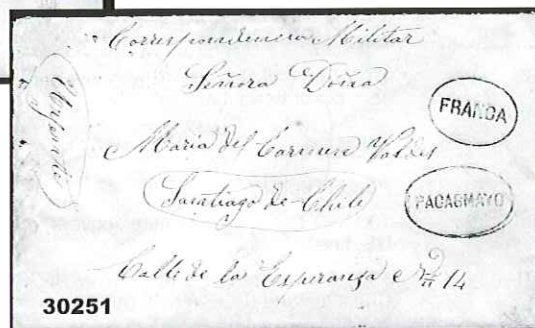 Correspondencia Militar
Señora Doña
FRANCA
Maria del Carmen Valdes
Santiago de Chile
PACASMAYO
Calle de la Esperanza Nº 14
30251